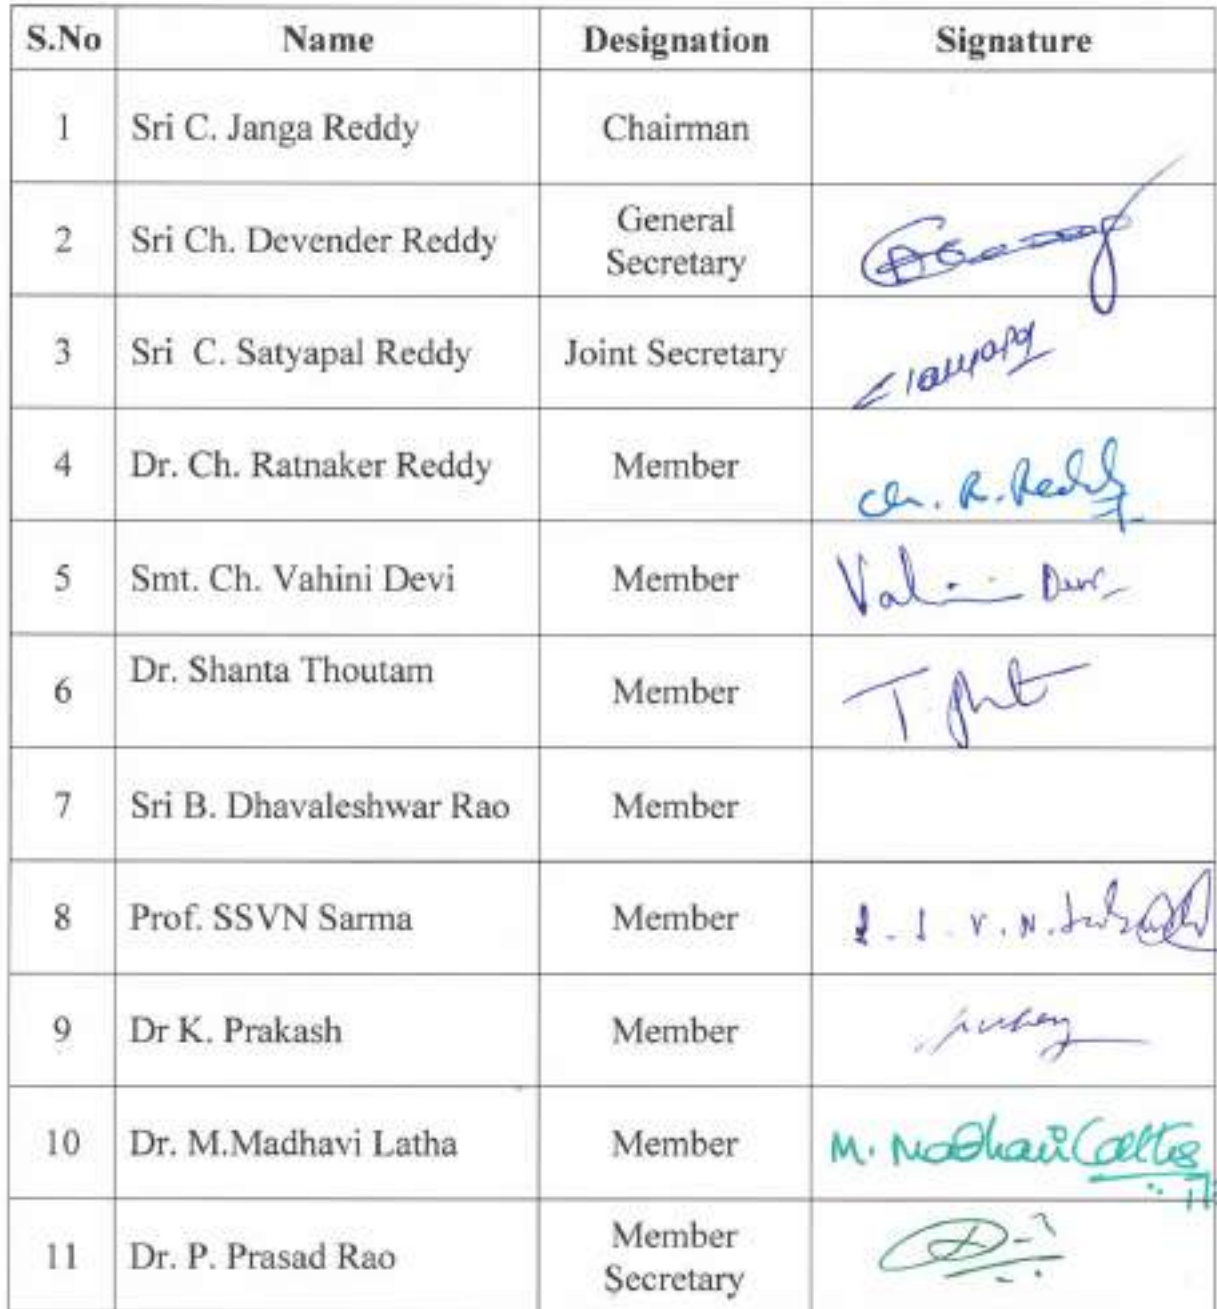 S.No Name Designation Signature
1 Sri C. Janga Reddy Chairman
General
2 Sri Ch. Devender Reddy
Secretary
3 Sri C. Satyapal Reddy Joint Secretary
4 Dr. Ch. Ratnaker Reddy Member Ch. R. Reddy
5 Smt. Ch. Vahini Devi Member Vahini Devi
Dr. Shanta Thoutam
6 Member T.
7 Sri B. Dhavaleshwar Rao Member
8 Prof. SSVN Sarma Member S. S. V. N.
9 Dr K. Prakash Member
10 Dr. M.Madhavi Latha Member M. Madhavi Latha
Member
11 Dr. P. Prasad Rao
Secretary